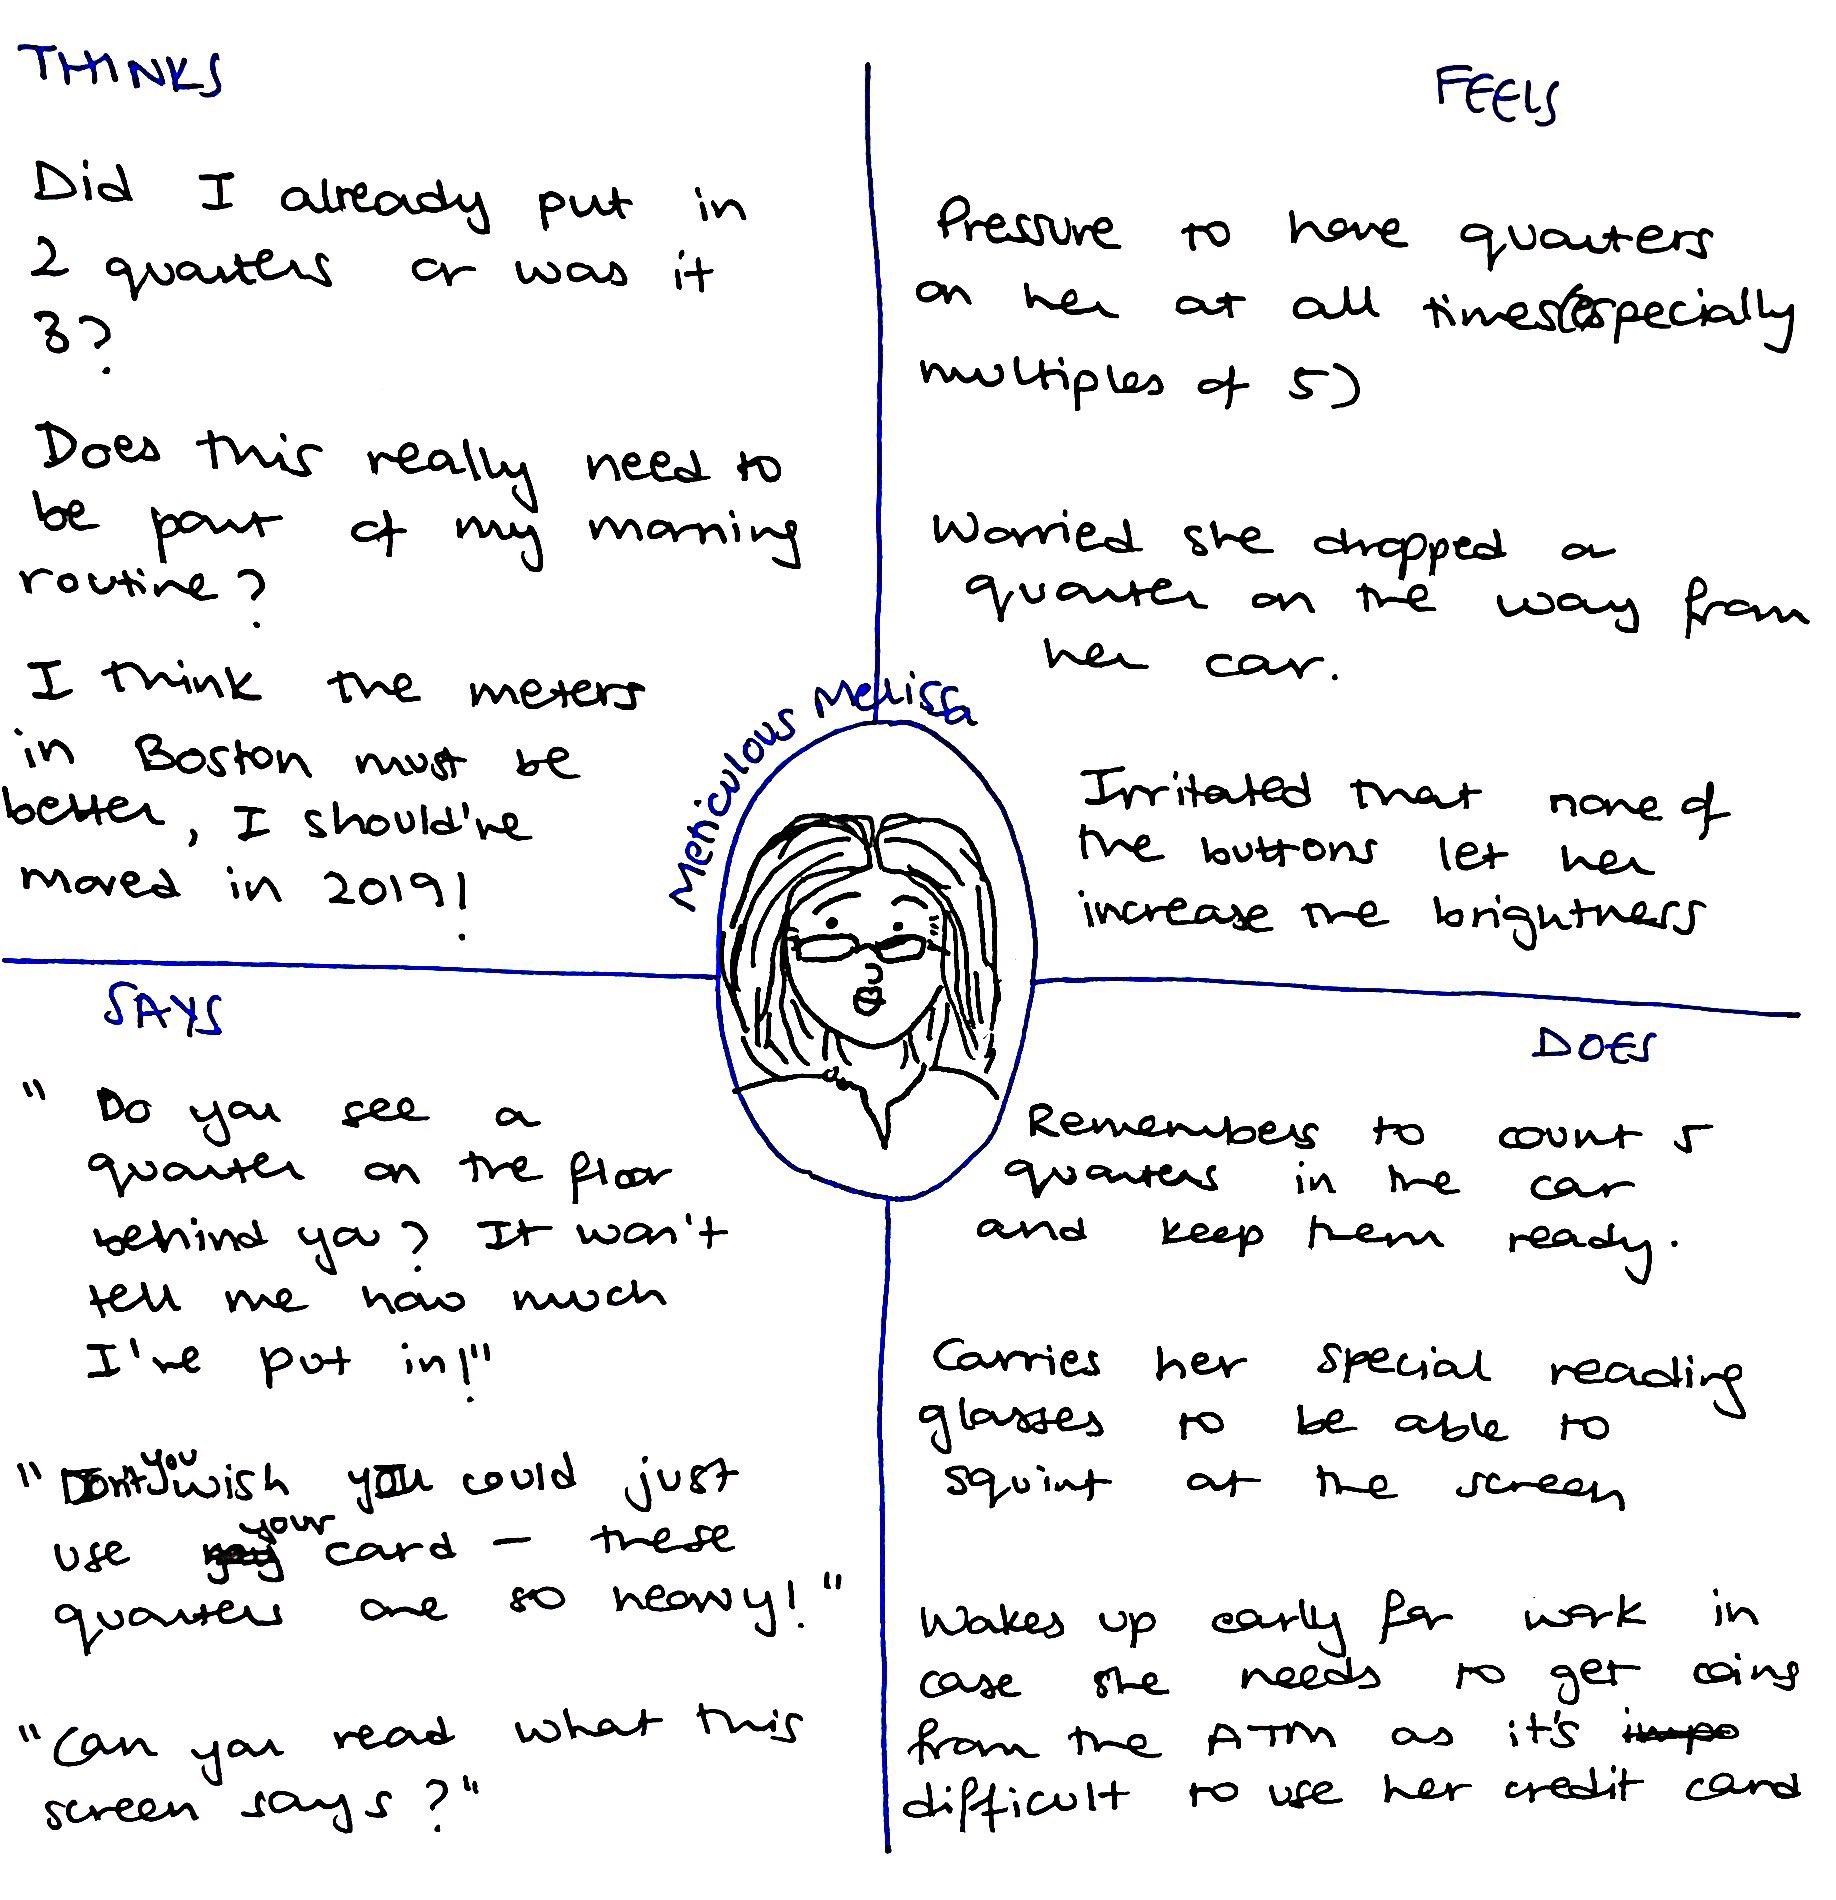 THINKS
Did I already put in
2 quarters or was it
3?
Does this really need to
be part of my morning
routine?
I think the meters
in Boston must be
better, I should've
moved in 2019!
FEELS
Pressure to have quarters
on her at all times (especially
multiples of 5)
Worried she dropped a
quarter on the way from
her car.
Irritated that none of
the buttons let her
increase the brightness
Meticulous Melissa
SAYS
" Do you see a
quarter on the floor
behind you? It won't
tell me how much
I've put in!"
"Dont you wish you could just
use your card - these
quarters are so heavy!"
"Can you read what this
screen says?"
DOES
Remembers to count 5
quarters in the car
and keep them ready.
Carries her special reading
glasses to be able to
squint at the screen
Wakes up early for work in
case she needs to get coins
from the ATM as it's
difficult to use her credit card